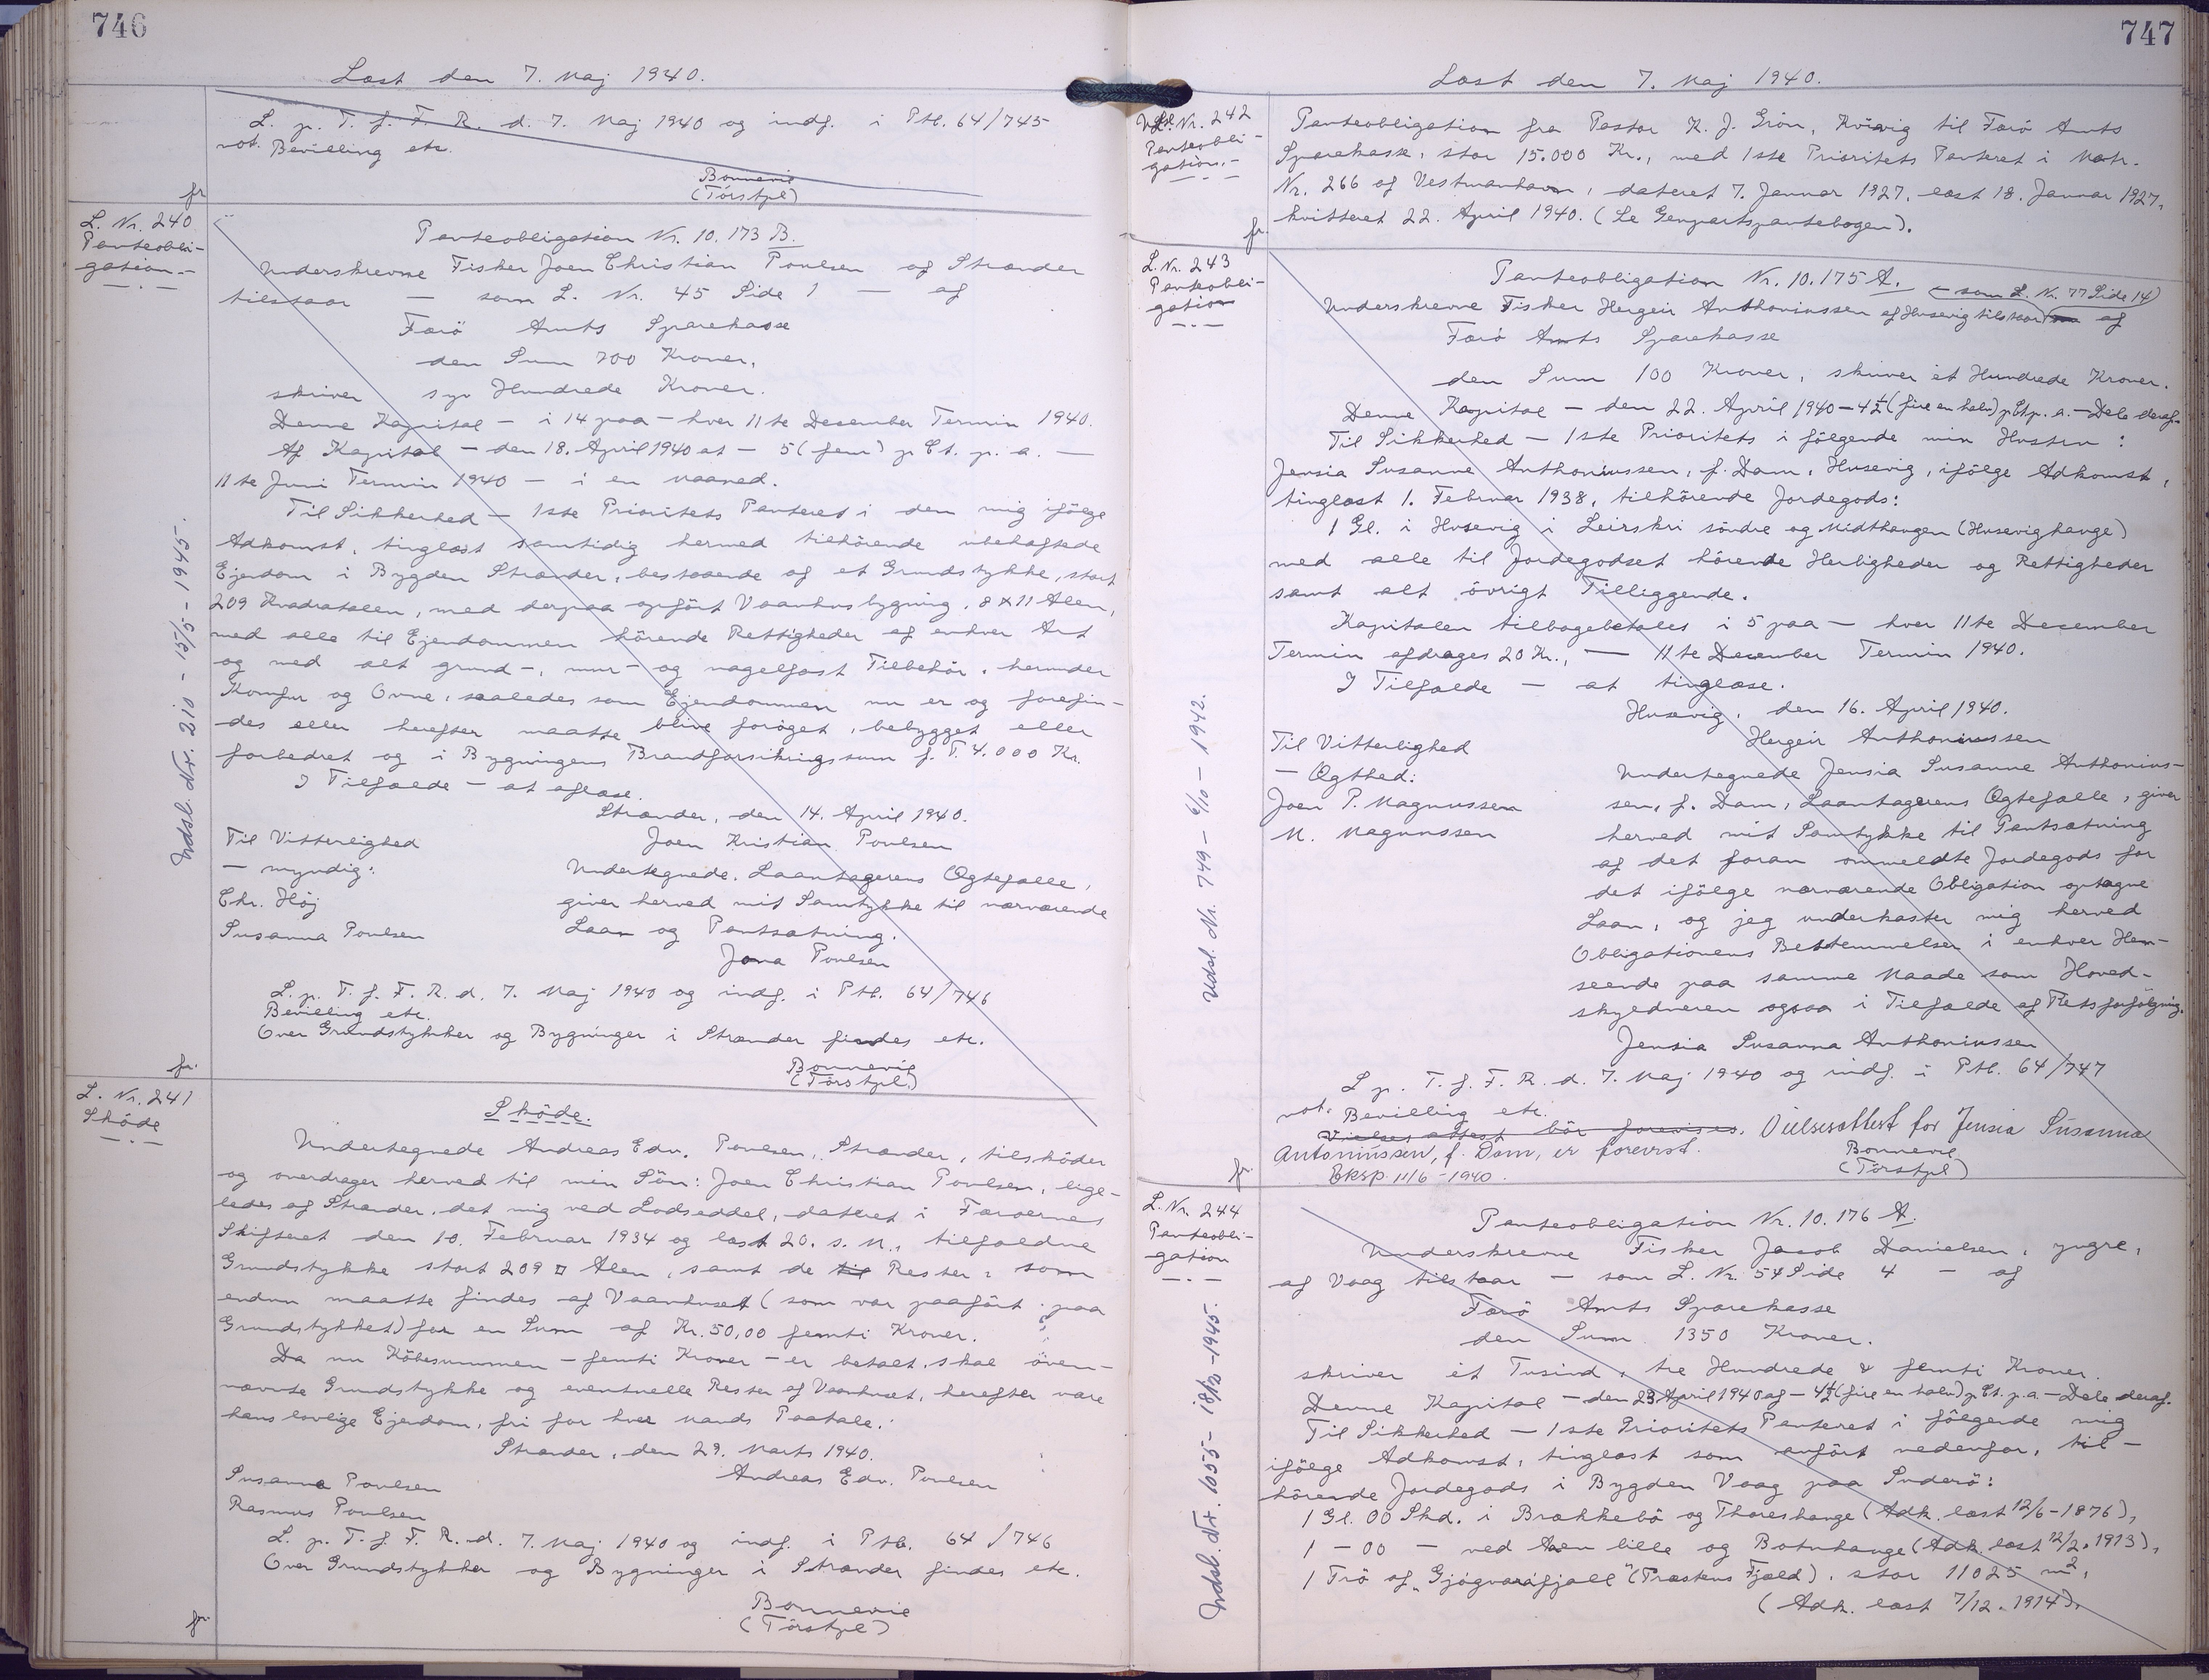 746
Læst den 7. Maj 1940.
L. p. T. f. F. R. d. 7. Maj 1940 og indf. i Ptb. 64/745
not. Bevilling etc.
Bonnevie
(Tórstpl)
fr
L. Nr. 240
Panteobli-
gation.-
Panteobligation Nr. 10.173 B.
Underskrevne Fisker Joen Christian Poulsen af Strænder
tilstaar — som L. Nr. 45 Side 1 — af
Færö Amts Sparekasse
den Sum 700 Kroner,
skriver syv Hundrede Kroner.
Denne Kapital — i 14 paa — hver 11te December Termin 1940.
Af Kapital — den 18. April 1940 at — 5 (fem) p Ct. p. a. —
11te Juni Termin 1940 — i en Maaned.
Til Sikkerhed — 1ste Prioritets Panteret i den mig ifölge
Adkomst, tinglæst samtidig hermed tilhörende ubehæftede
Ejendom i Bygden Strænder, bestaaende af et Grundstykke, stort
209 Kvadratalen, med derpaa opfört Vaanhusbygning, 8 x 11 Alen,
med alle til Ejendommen hörende Rettigheder af enhver Art
og med alt grund-, mur- og nagelfast Tilbehör, herunder
Komfur og Ovne, saaledes som Ejendommen nu er og forefin-
des eller herefter maatte blive foröget, bebygget eller
forbedret og i Bygningens Brandforsikringssum f. T. 4.000 Kr.
I Tilfælde — at aflæse.
Strænder, den 14. April 1940.
Til Vitterlighed
Joen Kristian Poulsen
— myndig:
Undertegnede, Laantagerens Ægtefælle,
Chr. Höj
giver herved mit Samtykke til nærværende
Susanna Poulsen
Laan og Pantsætning.
Jona Poulsen
L. p. T. f. F. R. d. 7. Maj 1940 og indf. i Ptb. 64/746
Bevilling etc.
Over Grundstykker og Bygninger i Strænder findes etc.
Bonnevie
(Tórstpl.)
fr.
Udsl. Nr. 210 - 15/5 - 1945.
L. Nr. 241
Sköde
Sköde.
Undertegnede Andreas Edv. Poulsen, Strænder, tilsköder
og overdrager herved til min Sön: Joen Christian Poulsen, lige-
ledes af Strænder, det mig ved Lodseddel, dateret i Færöernes
Skifteret den 10. Februar 1934 og læst 20. s. M., tilfaldne
Grundstykke stort 209 □ Alen, samt de til Rester, som
endnu maatte findes af Vaanhuset (som var paafört paa
Grundstykket) for en Sum af Kr. 50,00 femti Kroner.
Da nu Köbesummen - femti Kroner - er betalt, skal oven-
nævnte Grundstykke og eventuelle Rester af Vaanhuset, herefter være
hans lovlige Ejendom, fri for hver Mands Paatale.
Strænder, den 29. Marts 1940.
Susanna Poulsen
Andreas Edv. Poulsen
Rasmus Poulsen
L. p. T. f. F. R. d. 7. Maj 1940 og indf. i Ptb. 64/746
Over Grundstykker og Bygninger i Strænder findes etc.
Bonnevie
(Tórstpl)
fr.
747
Læst den 7. Maj 1940.
L. Nr. 242
Panteobli-
gation.-
Panteobligation fra Pastor K. J. Grön, Kvivig til Færö Amts
Sparekasse, stor 15.000 Kr., med 1ste Prioritets Panteret i Matr.
Nr. 266 af Vestmanhavn, dateret 7. Januar 1927, læst 18. Januar 1927,
kvitteret 22. April 1940. (Se Genpartspantebogen).
fr.
L. Nr. 243
Panteobli-
gation
Panteobligation Nr. 10.175 A.
— som L. Nr. 77 Side 14)
Underskrevne Fisker Hergeir Anthoniussen af Husevig tilstaar af
Færö Amts Sparekasse
den Sum 100 Kroner, skriver et Hundrede Kroner.
Denne Kapital — den 22. April 1940 — 4½ (fire en halv) p Ct p. a. — Dele deraf.
Til Sikkerhed — 1ste Prioritets i fölgende min Hustru:
Jensia Susanne Anthoniussen, f. Dam, Husevig, ifölge Adkomst,
tinglæst 1. Februar 1938, tilhörende Jordegods:
1 Gl. i Husevig i Leirskri söndre og Midthangen (Husevighange)
med alle til Jordegodset hörende Herligheder og Rettigheder
samt alt övrigt Tilliggende.
Kapitalen tilbagebetales i 5 paa — hver 11te December
Termin afdrages 20 Kr., — 11te December Termin 1940.
I Tilfælde — at tinglæse.
Husevig, den 16. April 1940.
Til Vitterlighed
Hergeir Anthoniussen
— Ægthed:
Undertegnede Jensia Susanne Anthonius-
Joen P. Magnussen
sen, f. Dam, Laantagerens Ægtefælle, giver
M. Magnussen
herved mit Samtykke til Pantsætning
af det foran ommeldte Jordegods for
det ifölge nærværende Obligation optagne
Laan, og jeg underkaster mig herved
Obligationens Bestemmelser i enhver Hen-
seende paa samme Maade som Hoved-
skyldneren ogsaa i Tilfælde af Retsforfölgning.
Jensia Susanna Anthoniussen
L p. T. f. F. R. d. 7. Maj 1940 og indf. i Ptb. 64/747
not. Bevilling etc.
Vielsesattest bör forevises. Vielsesattest for Jensia Susanna
Antoniussen, f. Dam, er forevist.
Bonnevie
(Tórstpl)
Eksp. 11/6 - 1940.
fr.
Udsl. Nr. 749 - 6/10 - 1942.
L. Nr. 244
Panteobli-
gation
Panteobligation Nr. 10.176 A.
Underskrevne Fisker Jacob Danielsen, yngre,
af Vaag tilstaar — som L. Nr. 54 Side 4 — af
Færö Amts Sparekasse
den Sum 1350 Kroner.
skriver et Tusind, tre Hundrede & femti Kroner.
Denne Kapital — den 23 April 1940 af — 4½ (fire en halv) p Ct. p. a. — Dele deraf.
Til Sikkerhed — 1ste Prioritets Panteret i fölgende mig
ifölge Adkomst, tinglæst som anfört nedenfor, til-
hörende Jordegods i Bygden Vaag paa Suderö:
1 Gl. 00 Skd. i Brækkebö og Thoreshange (Adk. læst 12/6-1876),
1 - 00 - ved Aaen lille og Botnhange (Adk. læst 12/2.1913),
1 Trö af "Gjógvaráfjall" (Træstens Fjæld), stor 11025 m²,
(Adk. læst 7/12.1914).
Udsl. Nr. 1055 - 18/12 - 1945.